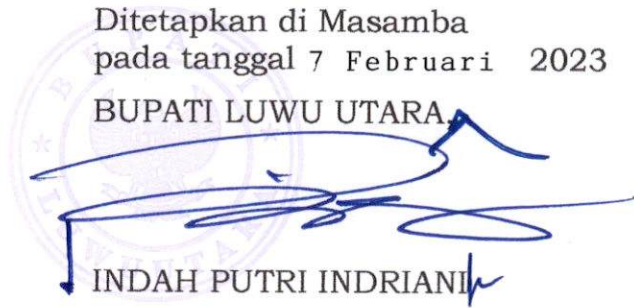 Ditetapkan di Masamba
pada tanggal 7 Februari 2023
BUPATI LUWU UTARA,
BUPATI
LUWU UTARA
INDAH PUTRI INDRIANI